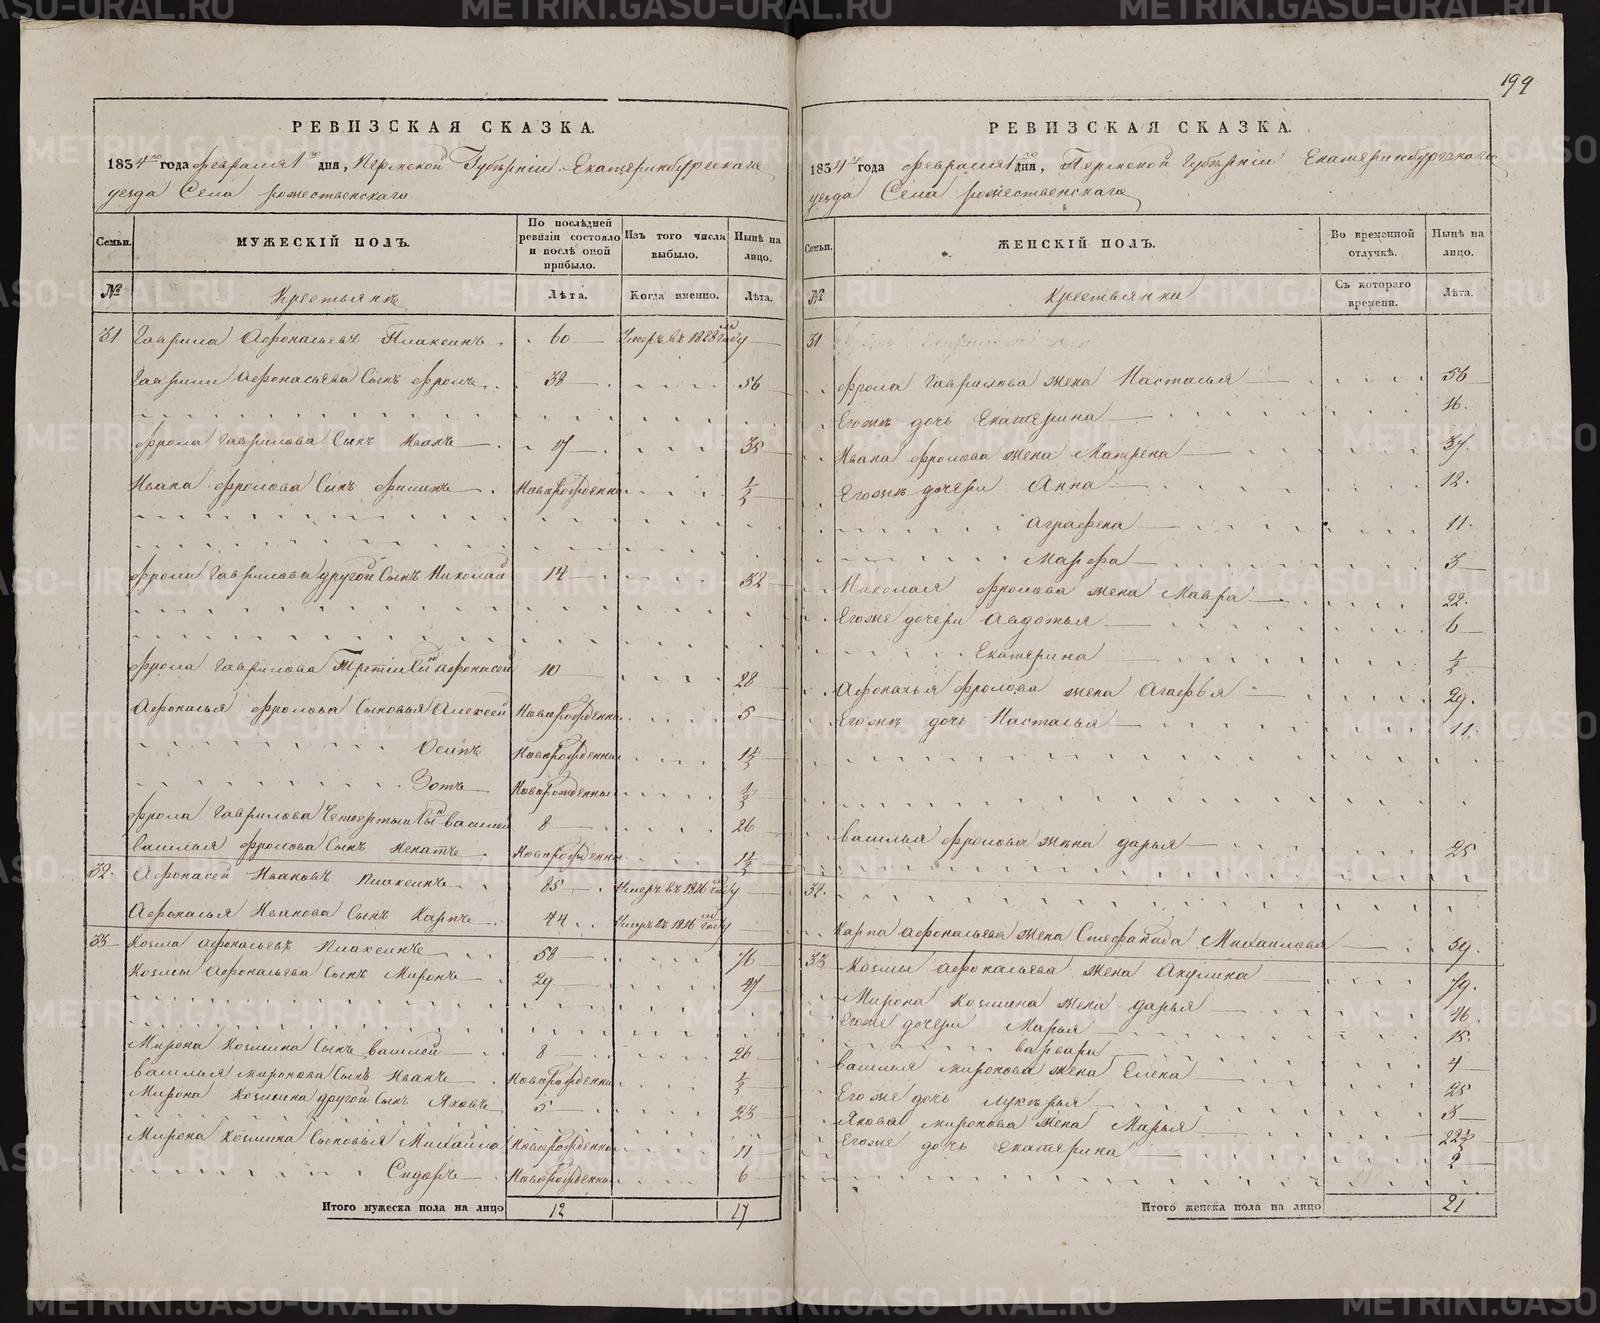 199
РЕВИЗСКАЯ СКАЗКА.
1834го года февраля 1го дня, Пермской Губерніи Екатеринбургскаго
уезда Села рожественскаго
Семьи. МУЖЕСКІЙ ПОЛЪ. По последней ревизіи состояло и послѣ оной прибыло. Изъ того числа выбыло. Нынѣ на лицо.
№ Крестьянъ Лѣта. Когда именно. Лѣта.
31 Гаврила Афонасьевъ Плаксинъ 60 Умеръ въ 1828м году
Гаврилы Афонасьева Сынъ Фролъ 38 56
Фрола Гаврилова Сынъ Иванъ 17 35
Ивана Фролова Сынъ Филипъ Новорожденны ½
Фрола Гаврилова другой Сынъ Николай 14 32
Фрола Гаврилова Третiй Сынъ Афонасей 10 28
Афонасья Фролова Сыновья Алексей Новорожденны 5
Осипъ Новорожденны 1½
Зотъ Новорожденны ½
Фрола Гаврилова Четвертый Сын Василей 8 26
Василья Фролова Сынъ Некатъ Новорожденны 1½
32. Афонасей Ивановъ Плаксинъ 85 Умеръ въ 1826м году
Афонасья Иванова Сынъ Карпъ 44 Умеръ въ 1826м году
33 Козма Афонасьевъ Плаксинъ 58 76
Козмы Афонасьева Сынъ Миронъ 29 47
Мирона Козмина Сынъ Василей 8 26
Василья миронова Сынъ Иванъ Новорожденны ½
Мирона Козмина другой Сынъ Яковъ 5 23
Мирона Козмина Сыновья Михайла Новорожденны 11
Сидоръ Новорожденны 6
Итого мужеска пола на лицо 12 17
РЕВИЗСКАЯ СКАЗКА.
1834го года февраля 1го дня, Пермской Губерніи Екатеринбургскаго
уезда Села рожественскаго
Семьи. ЖЕНСКІЙ ПОЛЪ. Во временной отлучкѣ. Нынѣ на лицо.
№ Крестьянки Съ котораго времени. Лѣта.
31
Фрола Гаврилова жена Настасья 56
Егожъ дочь Екатерина 16.
Ивана Фролова жена Матрена 37.
Егожъ дочери Анна 12.
Аграфена 11.
Марфа 3
Николая Фролова жена Мавра 22.
Егоже дочери Авдотья 6
Екатерина ½
Афонасья Фролова жена Агафья 29.
Егожъ дочь Настасья 11.
Василья Фролова жена дарья 25
32.
Карпа Афонасьева жена Стефанида Михаилова 59.
33 Козмы Афонасьева жена Акулина 79.
Мирона Козмина жена дарья 46.
Егоже дочери Марья 15.
варвара 4
Василья миронова жена Елена 25
Егоже дочь Лукерья 3
Якова миронова жена Марья 22½
Егоже дочь Екатерина 2
Итого женска пола на лицо 21